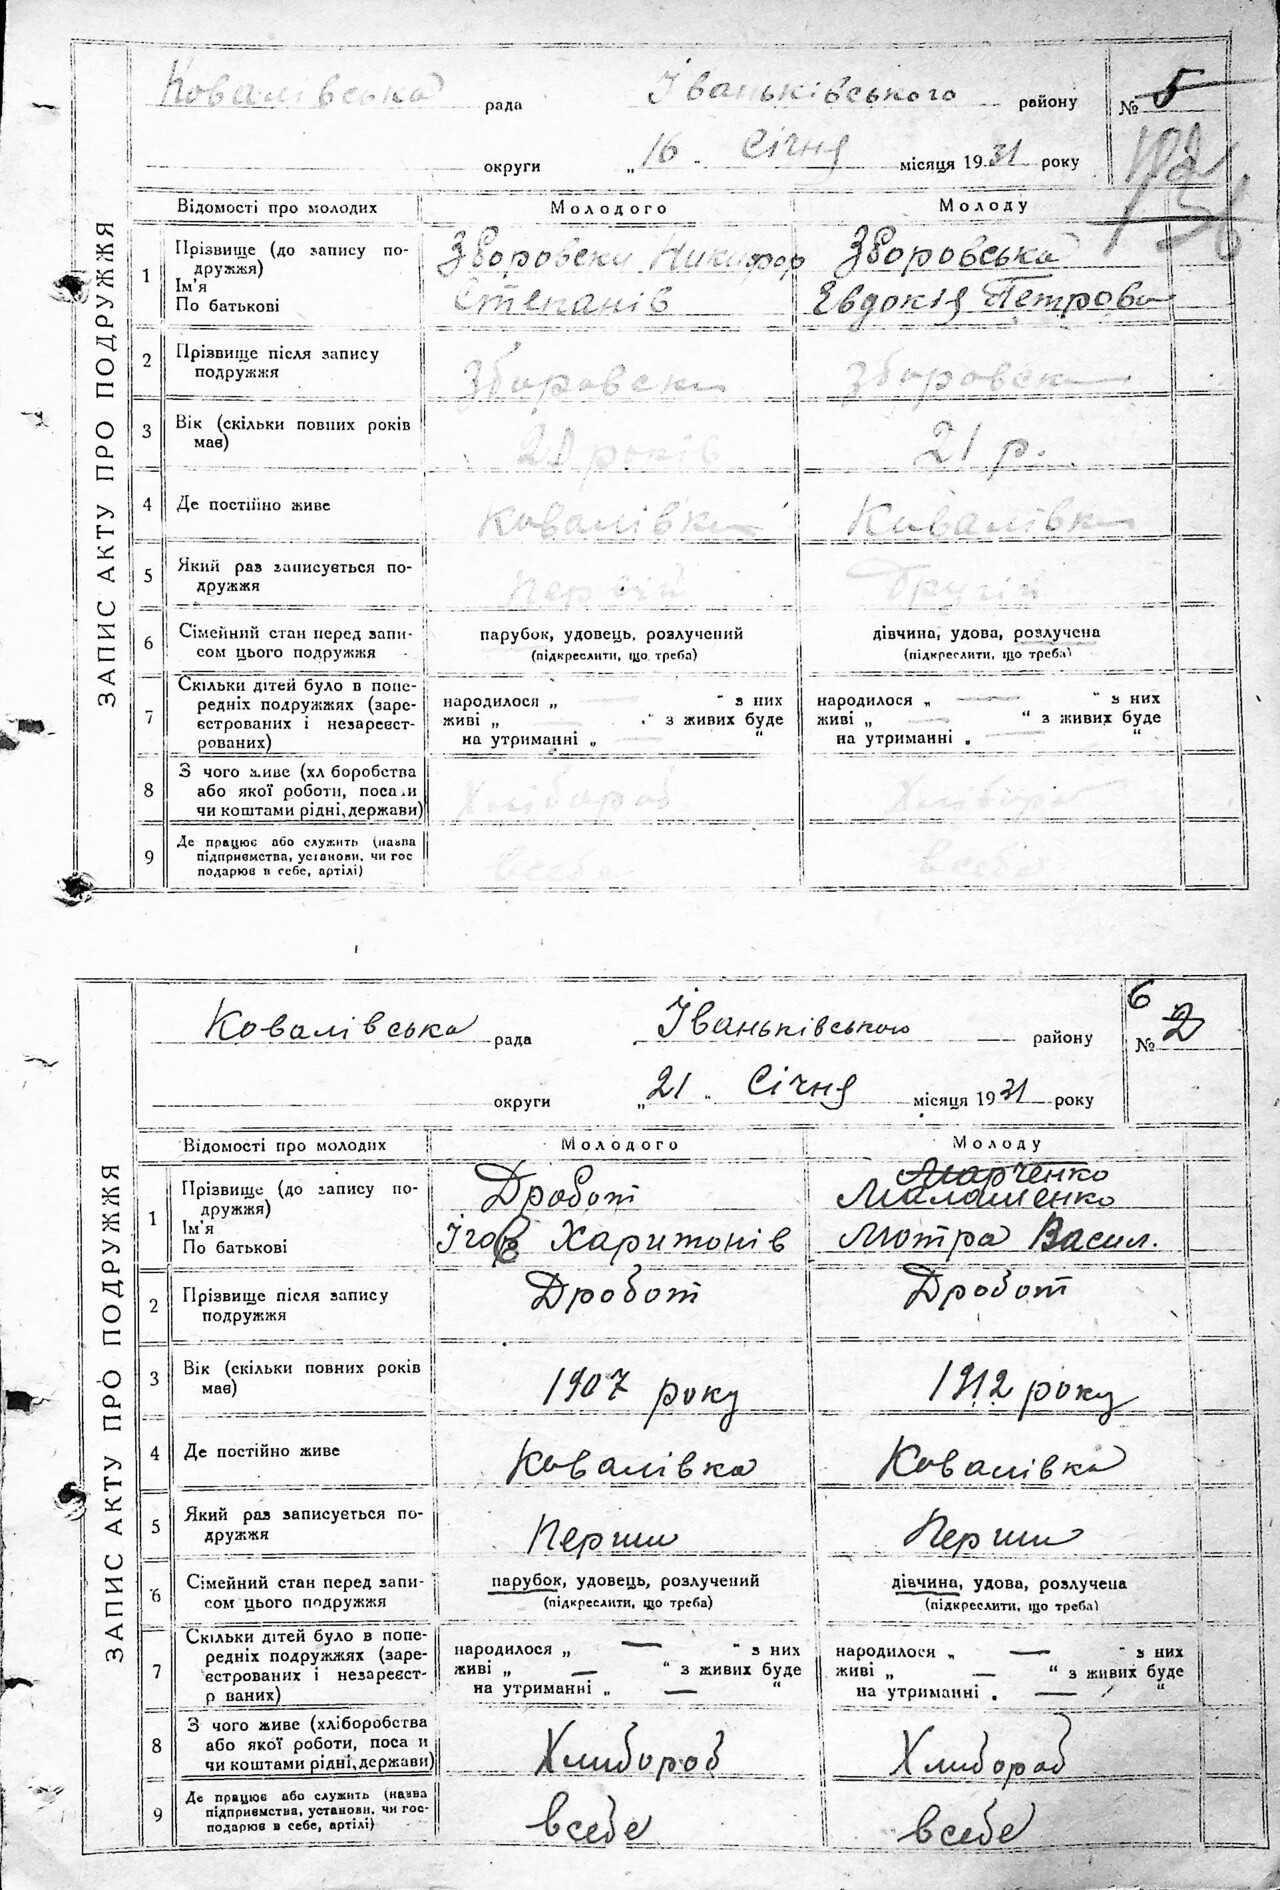 ЗАПИС АКТУ ПРО ПОДРУЖЖЯ
Ковалівська рада Іваньківського району № 5
округи „16" Січня місяця 1931 року
Відомості про молодих Молодого Молоду
1 Прізвище (до запису по- Зборовски Никифор Зборовська
дружжя)
Ім'я
По батькові Степанів Евдокія Петрова
2 Прізвище після запису
подружжя Зборовски Зборовска
3 Вік (скільки повних років
має) років 21 р.
4 Де постійно живе Ковалівка Ковалівка
5 Який раз записується по- Первій Другій
дружжя
6 Сімейний стан перед запи- парубок, удовець, розлучений дівчина, удова, розлучена
сом цього подружжя (підкреслити, що треба) (підкреслити, що треба)
7 Скільки дітей було в попе- народилося „ — " з них народилося „ — " з них
редніх подружжях (заре- живі „ — " з живих буде живі „ — " з живих буде
єстрованих і незареєст- на утриманні „ — " на утриманні „ — "
рованих)
8 З чого живе (хл боробства
або якої роботи, поса и Хлібороб Хлібороб
чи коштами рідні, держави)
9 Де працює або служить (назва
підприємства, установи, чи гос
подарює в себе, артілі) всебе всебе
ЗАПИС АКТУ ПРО ПОДРУЖЖЯ
6
Ковалівська рада Іваньківського району № 2
округи „21" Січня місяця 1931 року
Відомості про молодих Молодого Молоду
Марченко
1 Прізвище (до запису по- Дробот Малашенко
дружжя)
Ім'я Ігор Харитонів Мотра Васил.
По батькові
2 Прізвище після запису Дробот Дробот
подружжя
3 Вік (скільки повних років
має) 1907 року 1912 року
4 Де постійно живе Ковалівка Ковалівка
5 Який раз записується по-
дружжя Перши Перши
6 Сімейний стан перед запи- парубок, удовець, розлучений дівчина, удова, розлучена
сом цього подружжя (підкреслити, що треба) (підкреслити, що треба)
7 Скільки дітей було в попе- народилося „ — " з них народилося „ — " з них
редніх подружжях (заре- живі „ — " з живих буде живі „ — " з живих буде
єстрованих і незареєст- на утриманні „ — " на утриманні „ — "
р ваних)
8 З чого живе (хліборобства
або якої роботи, поса и Хлибороб Хлибороб
чи коштами рідні, держави)
9 Де працює або служить (назва
підприємства, установи, чи гос-
подарює в себе, артілі) всебе всебе